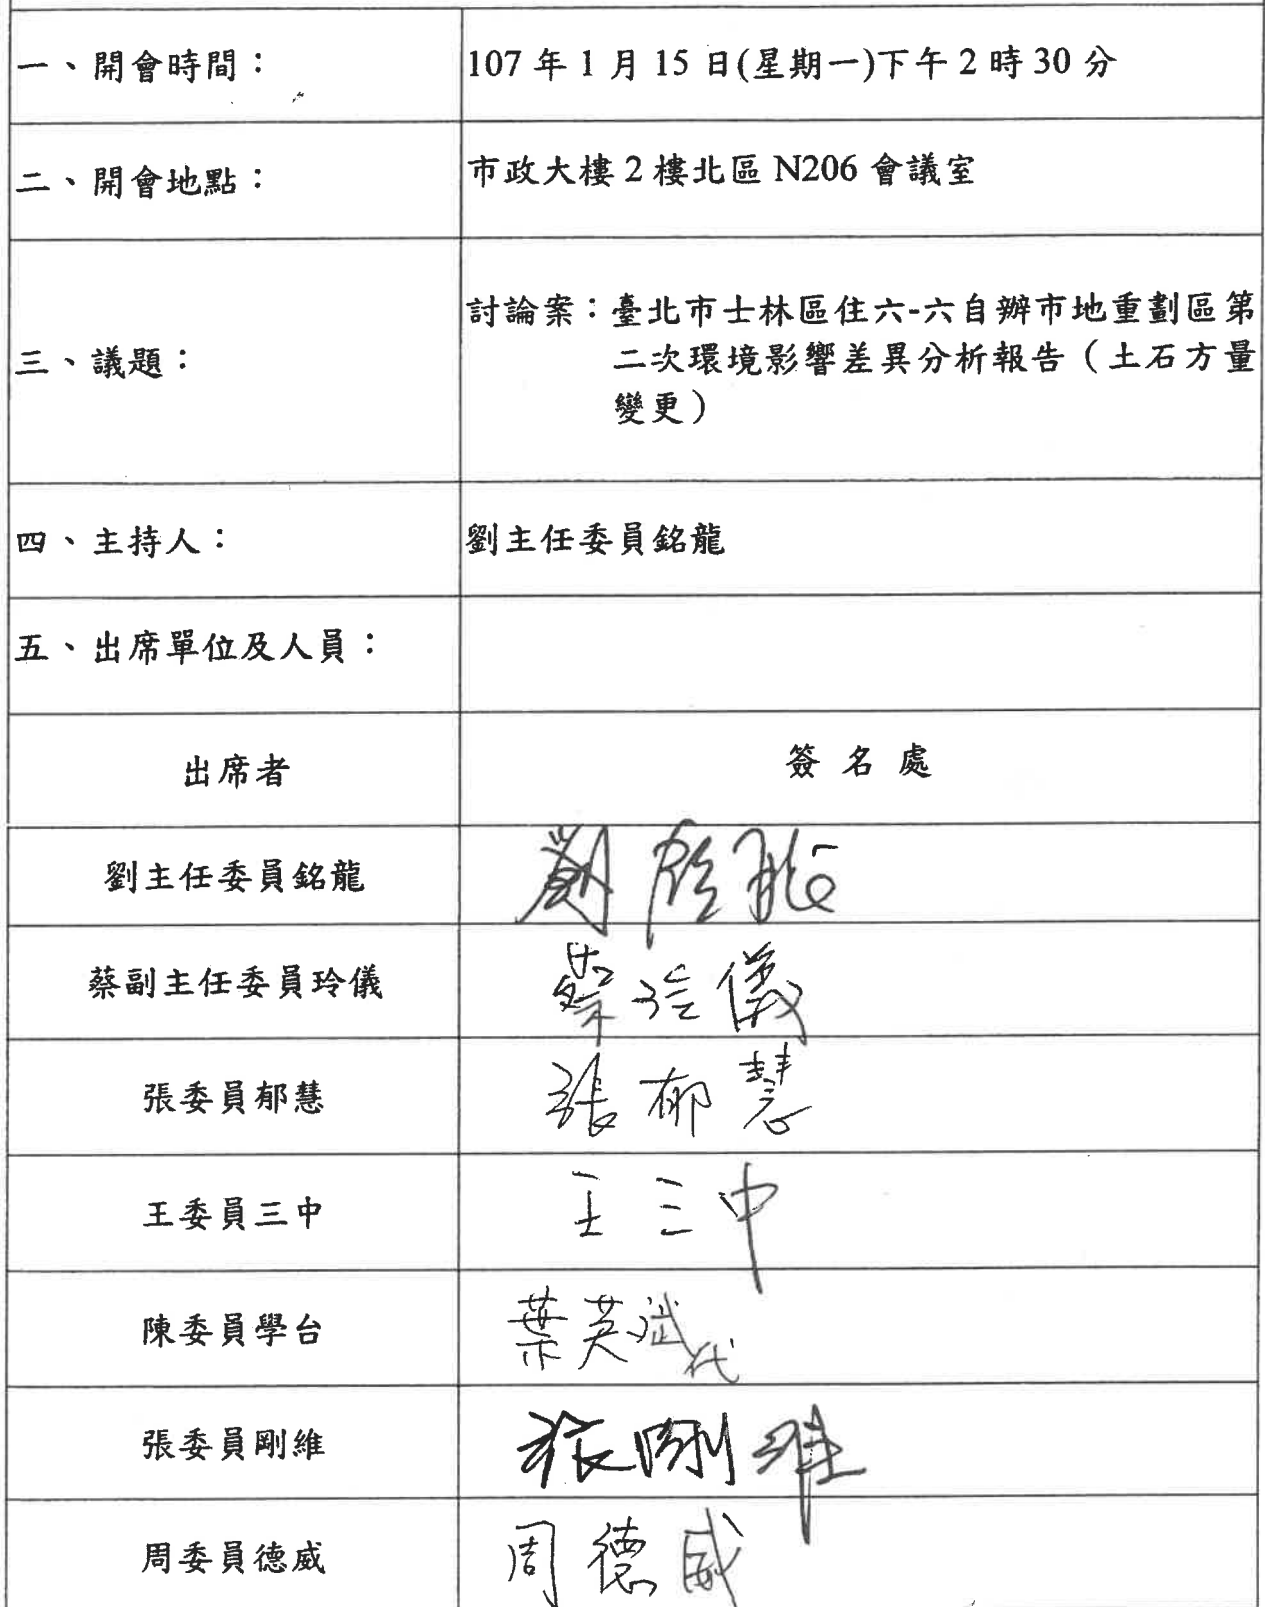 一、開會時間：
107年1月15日(星期一)下午2時30分
二、開會地點：
市政大樓2樓北區N206會議室
三、議題：
討論案：臺北市士林區住六-六自辦市地重劃區第
二次環境影響差異分析報告（土石方量
變更）
四、主持人：
劉主任委員銘龍
五、出席單位及人員：
出席者
簽名處
劉主任委員銘龍
劉銘龍
蔡副主任委員玲儀
蔡玲儀
張委員郁慧
張郁慧
王委員三中
王三中
陳委員學台
葉英斌代
張委員剛維
張剛維
周委員德威
周德威